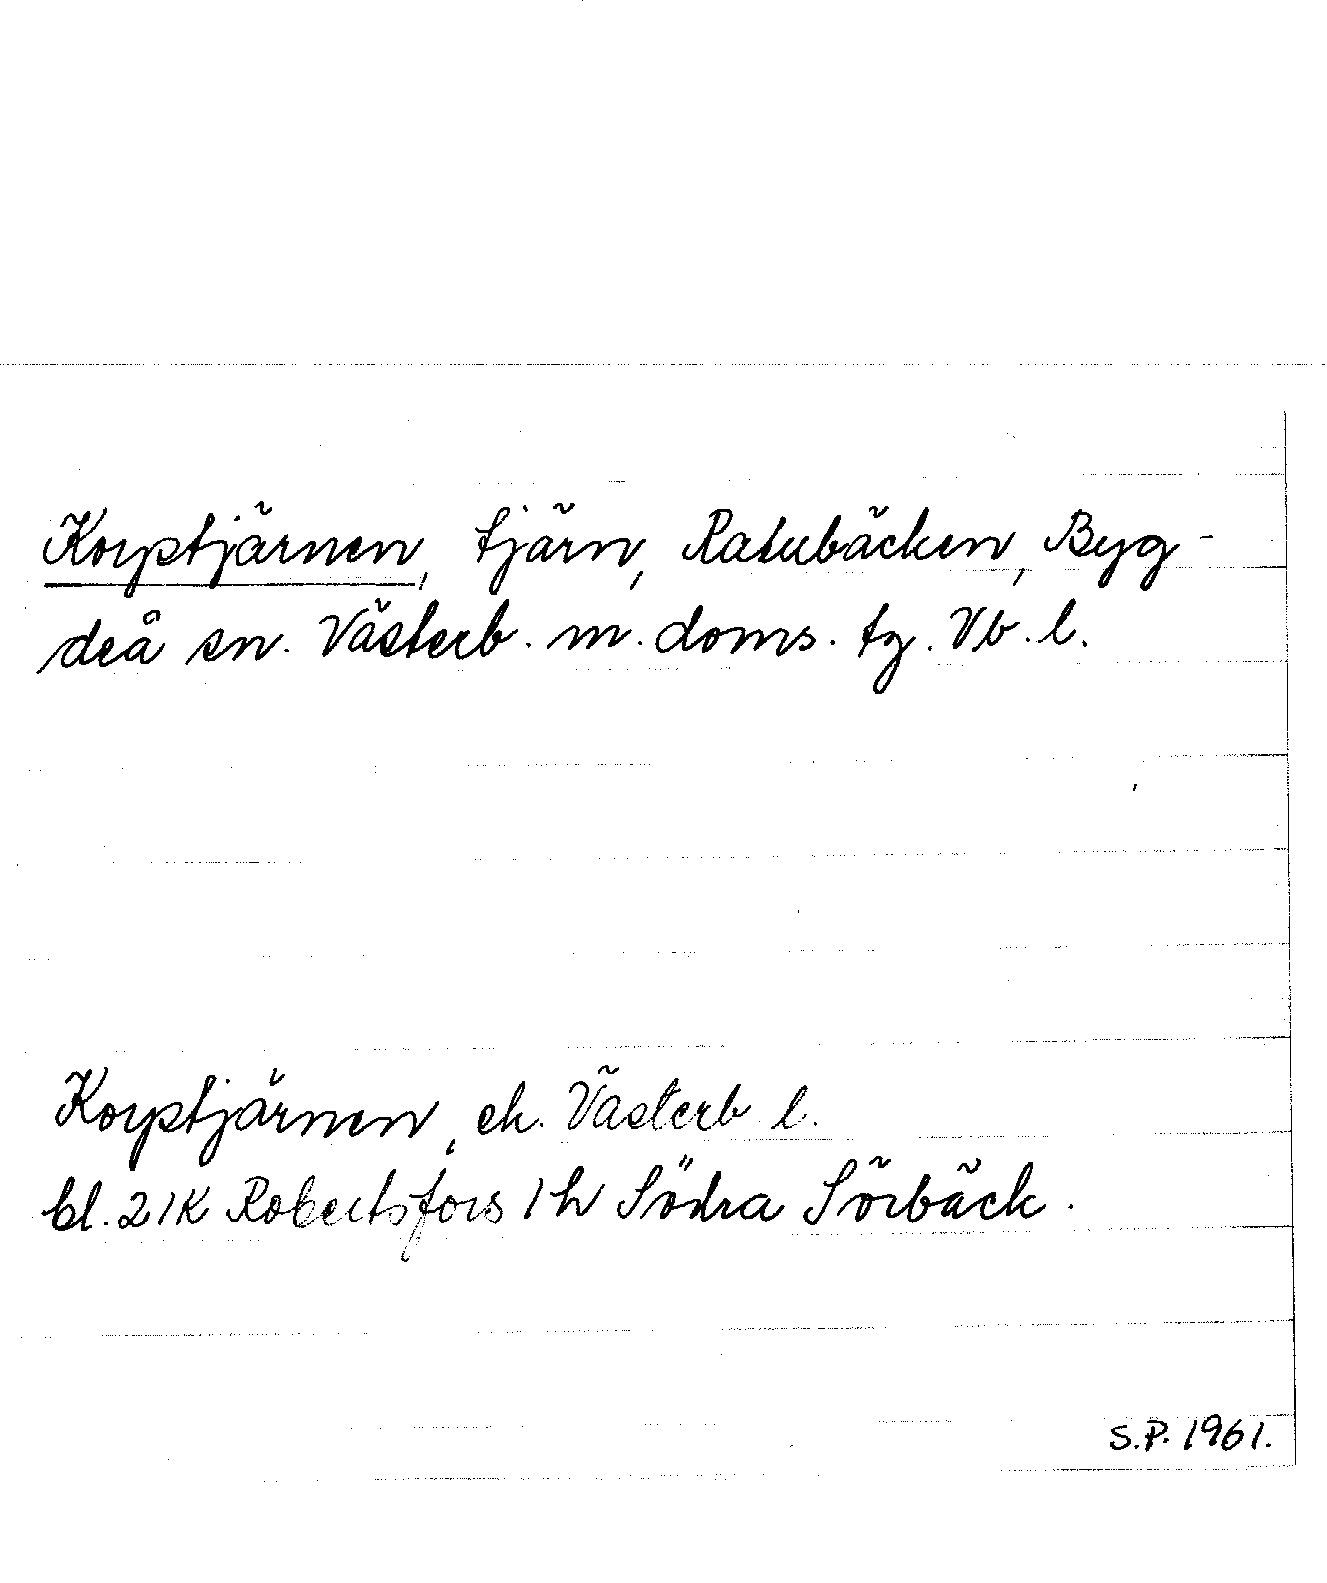 Korptjärnen, tjärn, Ratubäcken, Byg-
deå sn. Västerb. m. doms. tg. Vb. l.
Korptjärnen, ek. Västerb l.
bl. 21K Robertsfors 1h Södra Sörbäck.
S.P. 1961.